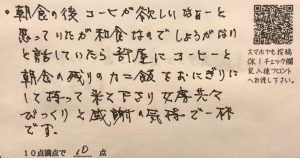 ・朝食の後コーヒーが欲しいなぁーと
思っていたが和食なのでしょうがない
と話していたら部屋にコーヒーと
朝食の残りのカニ飯をおにぎりに
して持って来て下さり女房共々
びっくりと感謝の気持で一杯
です。
10点満点で 10 点
スマホでも投稿
OK!チェック欄
記入後フロント
へお渡し下さい。